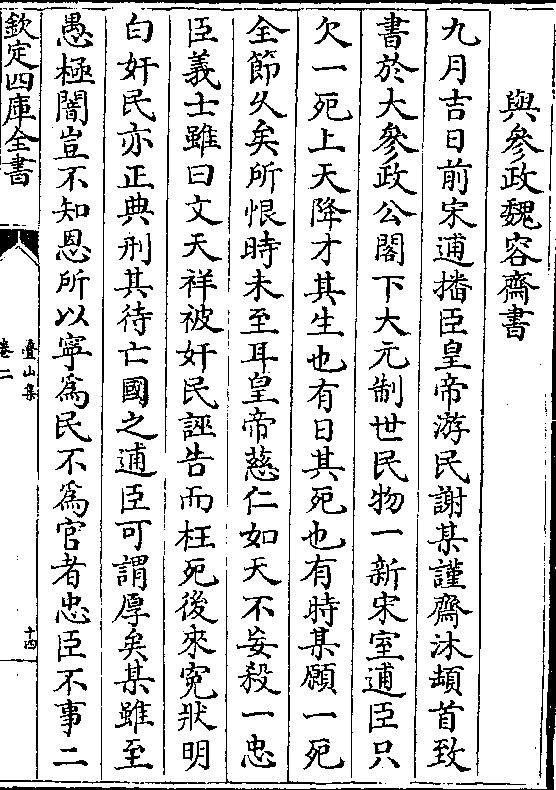 與參政魏容齋書
九月吉日前宋逋播臣皇帝游民謝某謹齋沐頓首致
書於大參政公閣下大元制世民物一新宋室逋臣只
欠一死上天降才其生也有日其死也有時某願一死
全節久矣所恨時未至耳皇帝慈仁如天不妄殺一忠
臣義士雖曰文天祥被奸民誣告而枉死後來寃狀明
白奸民亦正典刑其待亡國之逋臣可謂厚矣某雖至
愚極闇豈不知恩所以寧爲民不爲官者忠臣不事二
欽定四庫全書
疊山集
卷二
十四